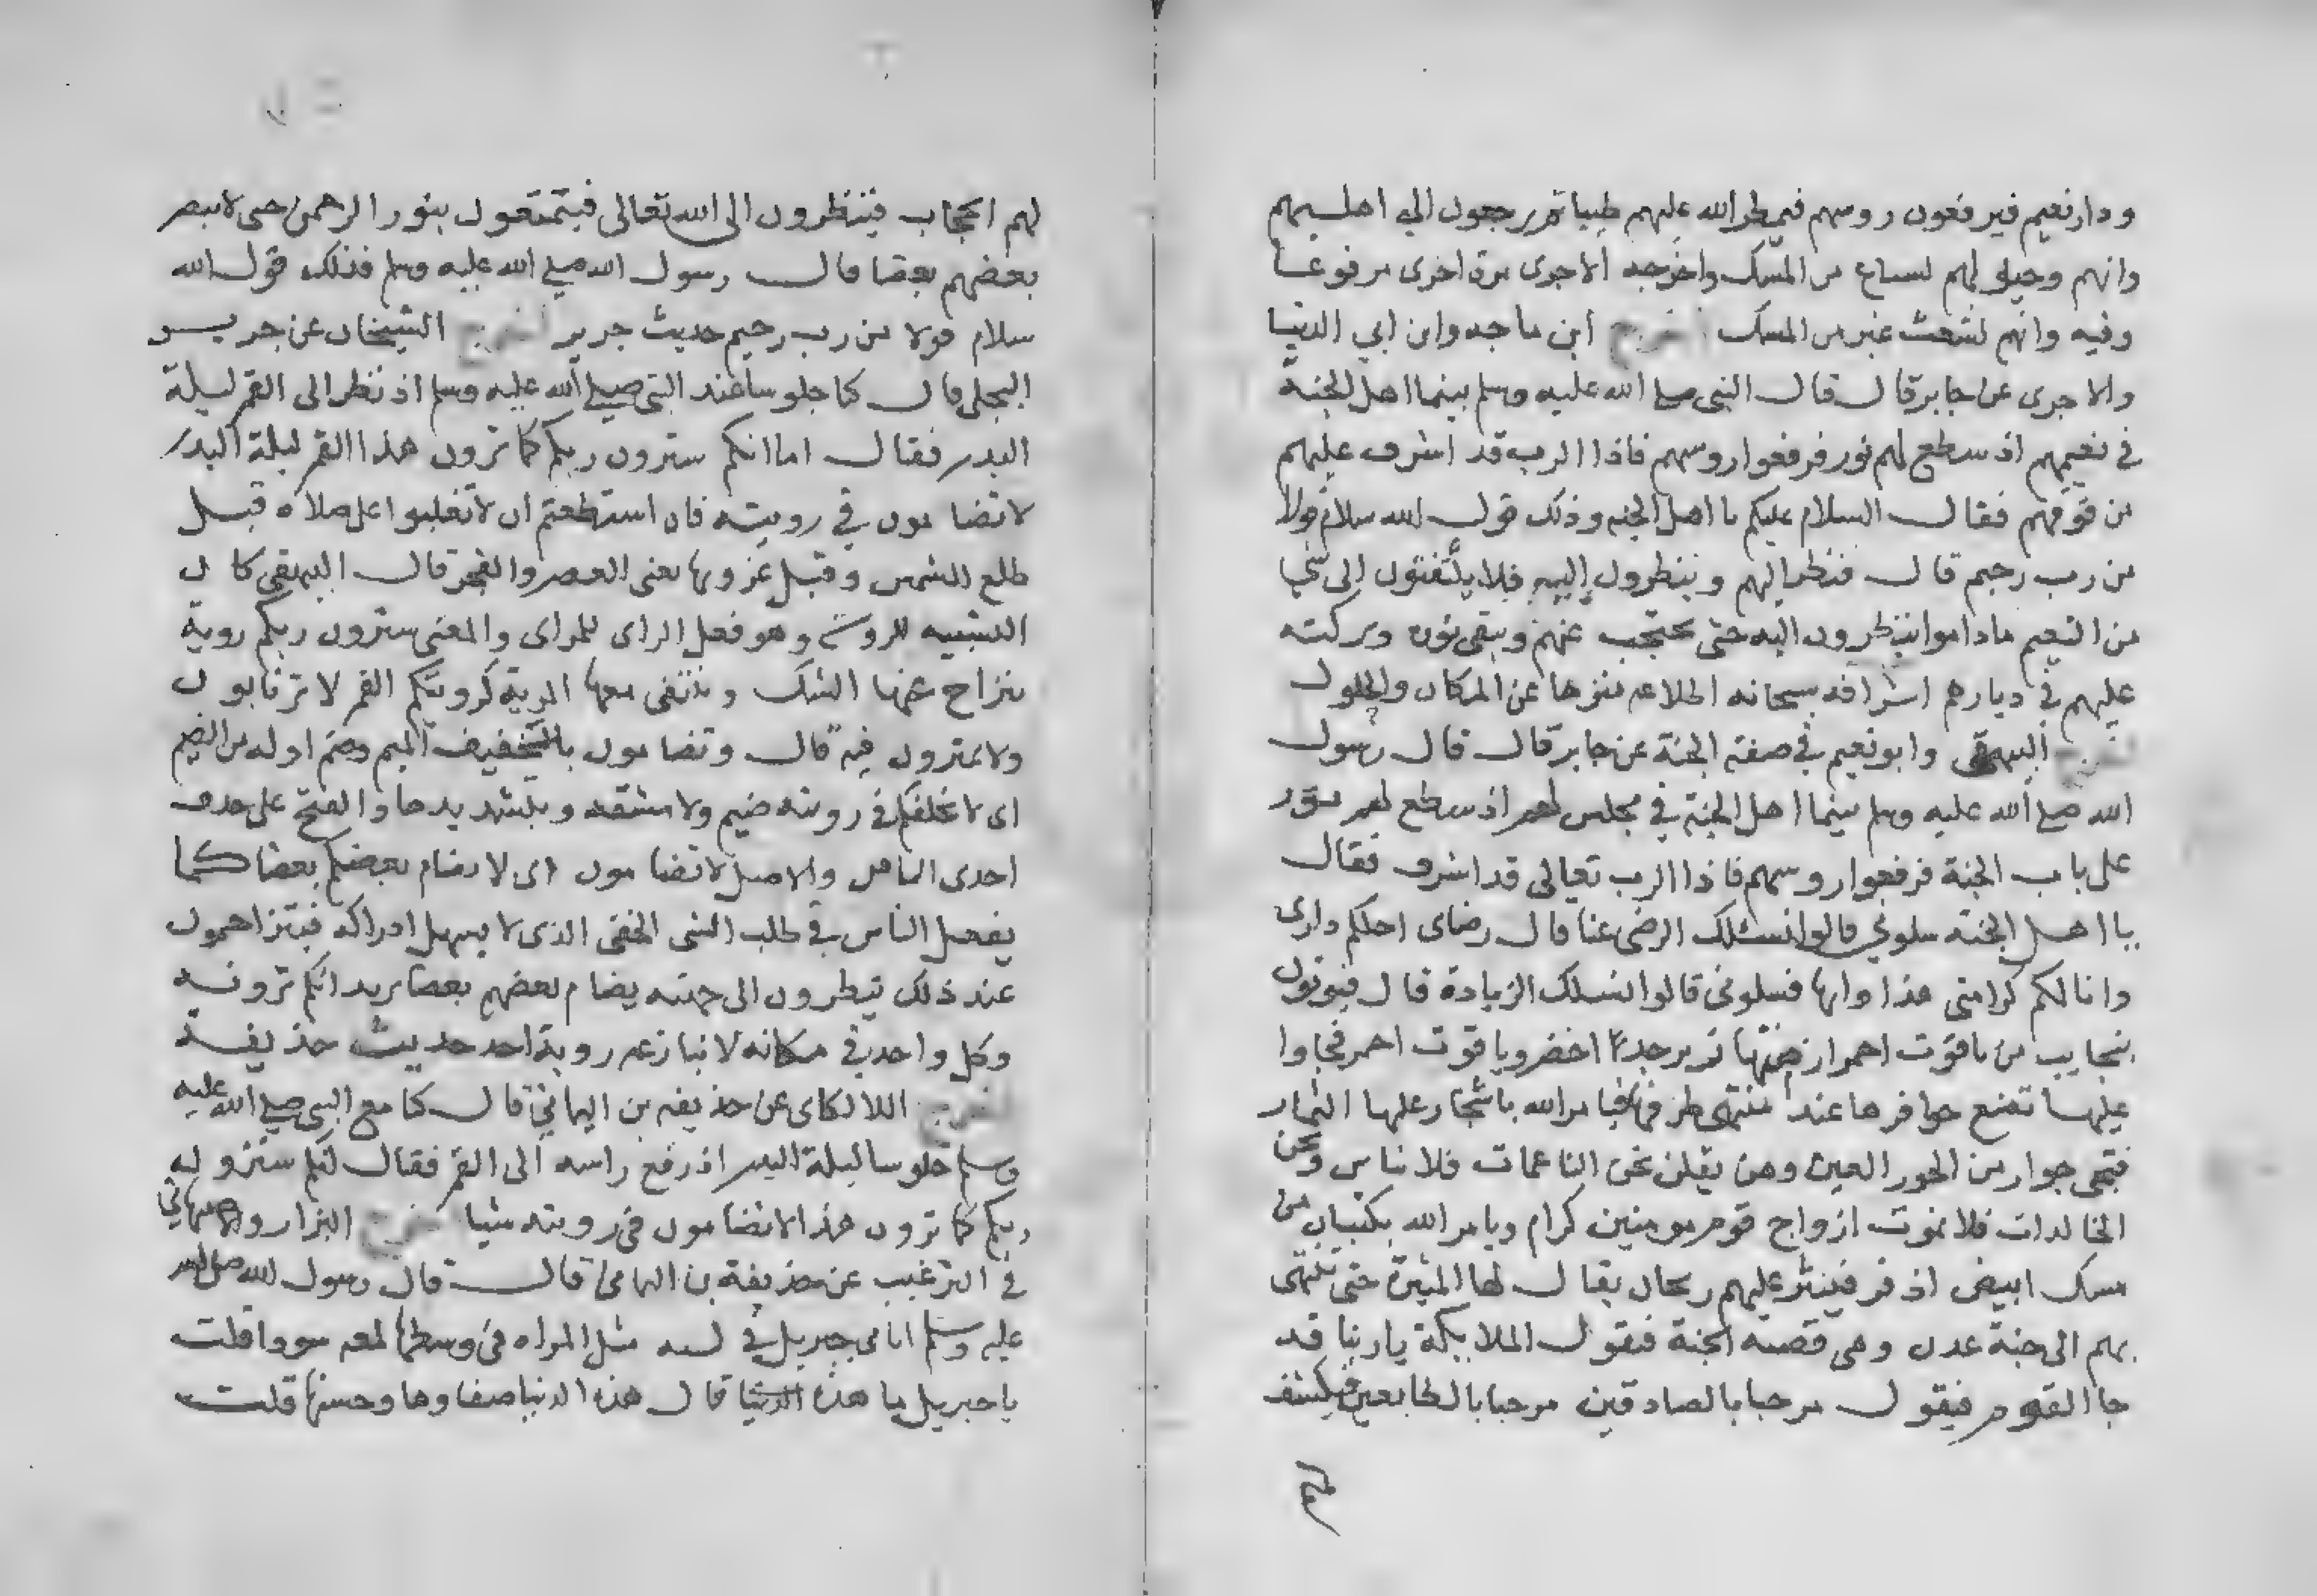 ودار نعيم فيرفعون روسهم فيمطر الله عليهم طيبا ثم يرجعون الي اهليهم
وانهم وخيلهم لسباع من المسك واخرجه الاجرى مرة اخرى مرفوعا
وفيه وانهم لشعث غبر من المسك اخرج ابن ماجه وابن ابي الدنيا
والاجرى عن جابر قال قال النبي صلى الله عليه وسلم بينما اهل الجنة
في نعيمهم اذ سطع لهم نور فرفعوا روسهم فاذا الرب قد اشرف عليهم
من فوقهم فقال السلام عليكم يا اهل الجنه وذلك قول الله سلام قولا
من رب رحيم قال فينظر اليهم وينظرون اليه فلا يلتفتون الى شي
من النعيم ماداموا ينظرون اليه حتى يحتجب عنهم ويبقى نوره وبركته
عليهم في ديارهم اشرافه سبحانه اطلاعه منزها عن المكان والحلول
اخرج البيهقي وابو نعيم في صفة الجنة عن جابر قال قال رسول
الله صلى الله عليه وسلم بينما اهل الجنة في مجلس لهم اذ سطع لهم نور
على باب الجنة فرفعوا روسهم فاذا الرب تعالى قد اشرف فقال
يا اهل الجنة سلوني قالوا نسئلك الرضى عنا قال رضاى احلكم دارى
وانالكم كرامتى هذا اوانها فسلونى قالوا نسلك الزيادة قال فيوتون
بنجايب من ياقوت احمر ازمتها زبرجد اخضر وياقوت احمر فجاوا
عليها تضع حوافرها عند منتهى طرفها فيامر الله باشجار عليها الثمار
فتجى جوار من الحور العين وهن يقلن نحن الناعمات فلا نباس ونحن
الخالدات فلا نموت ازواج قوم مومنين كرام ويامر الله بكثبان من
مسك ابيض اذفر فينثر عليهم ريحان يقال لها المثيرة حتى تنتهى
بهم الى جنة عدن وهى قصبة الجنة فتقول الملايكة يا ربنا قد
جا القوم فيقول مرحبا بالصادقين مرحبا بالطايعين فيكشف
لهم
لهم الحجاب فينظرون الى الله تعالى فيتمتعون بنور الرحمن حتى لا يبصر
بعضهم بعضا قال رسول الله صلى الله عليه وسلم فذلك قول الله
سلام قولا من رب رحيم حديث جرير اخرج الشيخان عن جرير
البجلى قال كنا جلوسا عند النبي صلى الله عليه وسلم اذ نظر الى القمر ليلة
البدر فقال اما انكم سترون ربكم كما ترون هذا القمر ليلة البدر
لا تضامون في رويته فان استطعتم ان لا تغلبوا على صلاة قبل
طلع الشمس وقبل غروبها يعنى العصر والفجر قال البيهقى كان
التشبيه للروية وهو فعل الراى للمراى والمعنى سترون ربكم روية
ينزاح عنها الشك وينتفى معها المرية كرويتكم القمر لا ترتابون
ولا تمترون فيه قال وتضامون بالتخفيف الميم وضم اوله من الضيم
اى لا يخلفكم في رويته ضيم ولا مشقه وبتشديدها والفتح على حذف
احدى التاءين والاصل لا تتضامون اى لا يضام بعضكم بعضا كما
يفعل الناس في طلب الشى الخفى الذى لا يسهل ادراكه فيتزاحمون
عند ذلك ينظرون الى جهته يضام بعضهم بعضا يريد انكم ترونه
وكل واحد في مكانه لا ينازعه روية احد حديث حذيفة
اخرج اللالكاى عن حذيفه بن اليمانى قال كنا مع النبى صلى الله عليه
وسلم جلوسا ليلة البدر اذ رفع راسه الى القمر فقال لكم سترون
ربكم كما ترون هذا لا تضامون فى رويته شيا اخرج البزار والاصبهاني
في الترغيب عن حذيفة بن اليمانى قال قال رسول الله صلى الله
عليه وسلم اتانى جبريل في مثل المراه فى وسطها لمعه سودا قلت
يا جبريل ما هذه الدنيا قال هذه الدنيا صفاوها وحسنها قلت